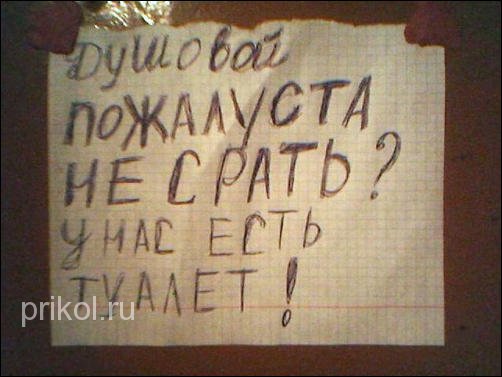 Душовой
ПОЖАЛУСТА
НЕ СРАТЬ?
У НАС ЕСТЬ
ТУАЛЕТ!
prikol.ru